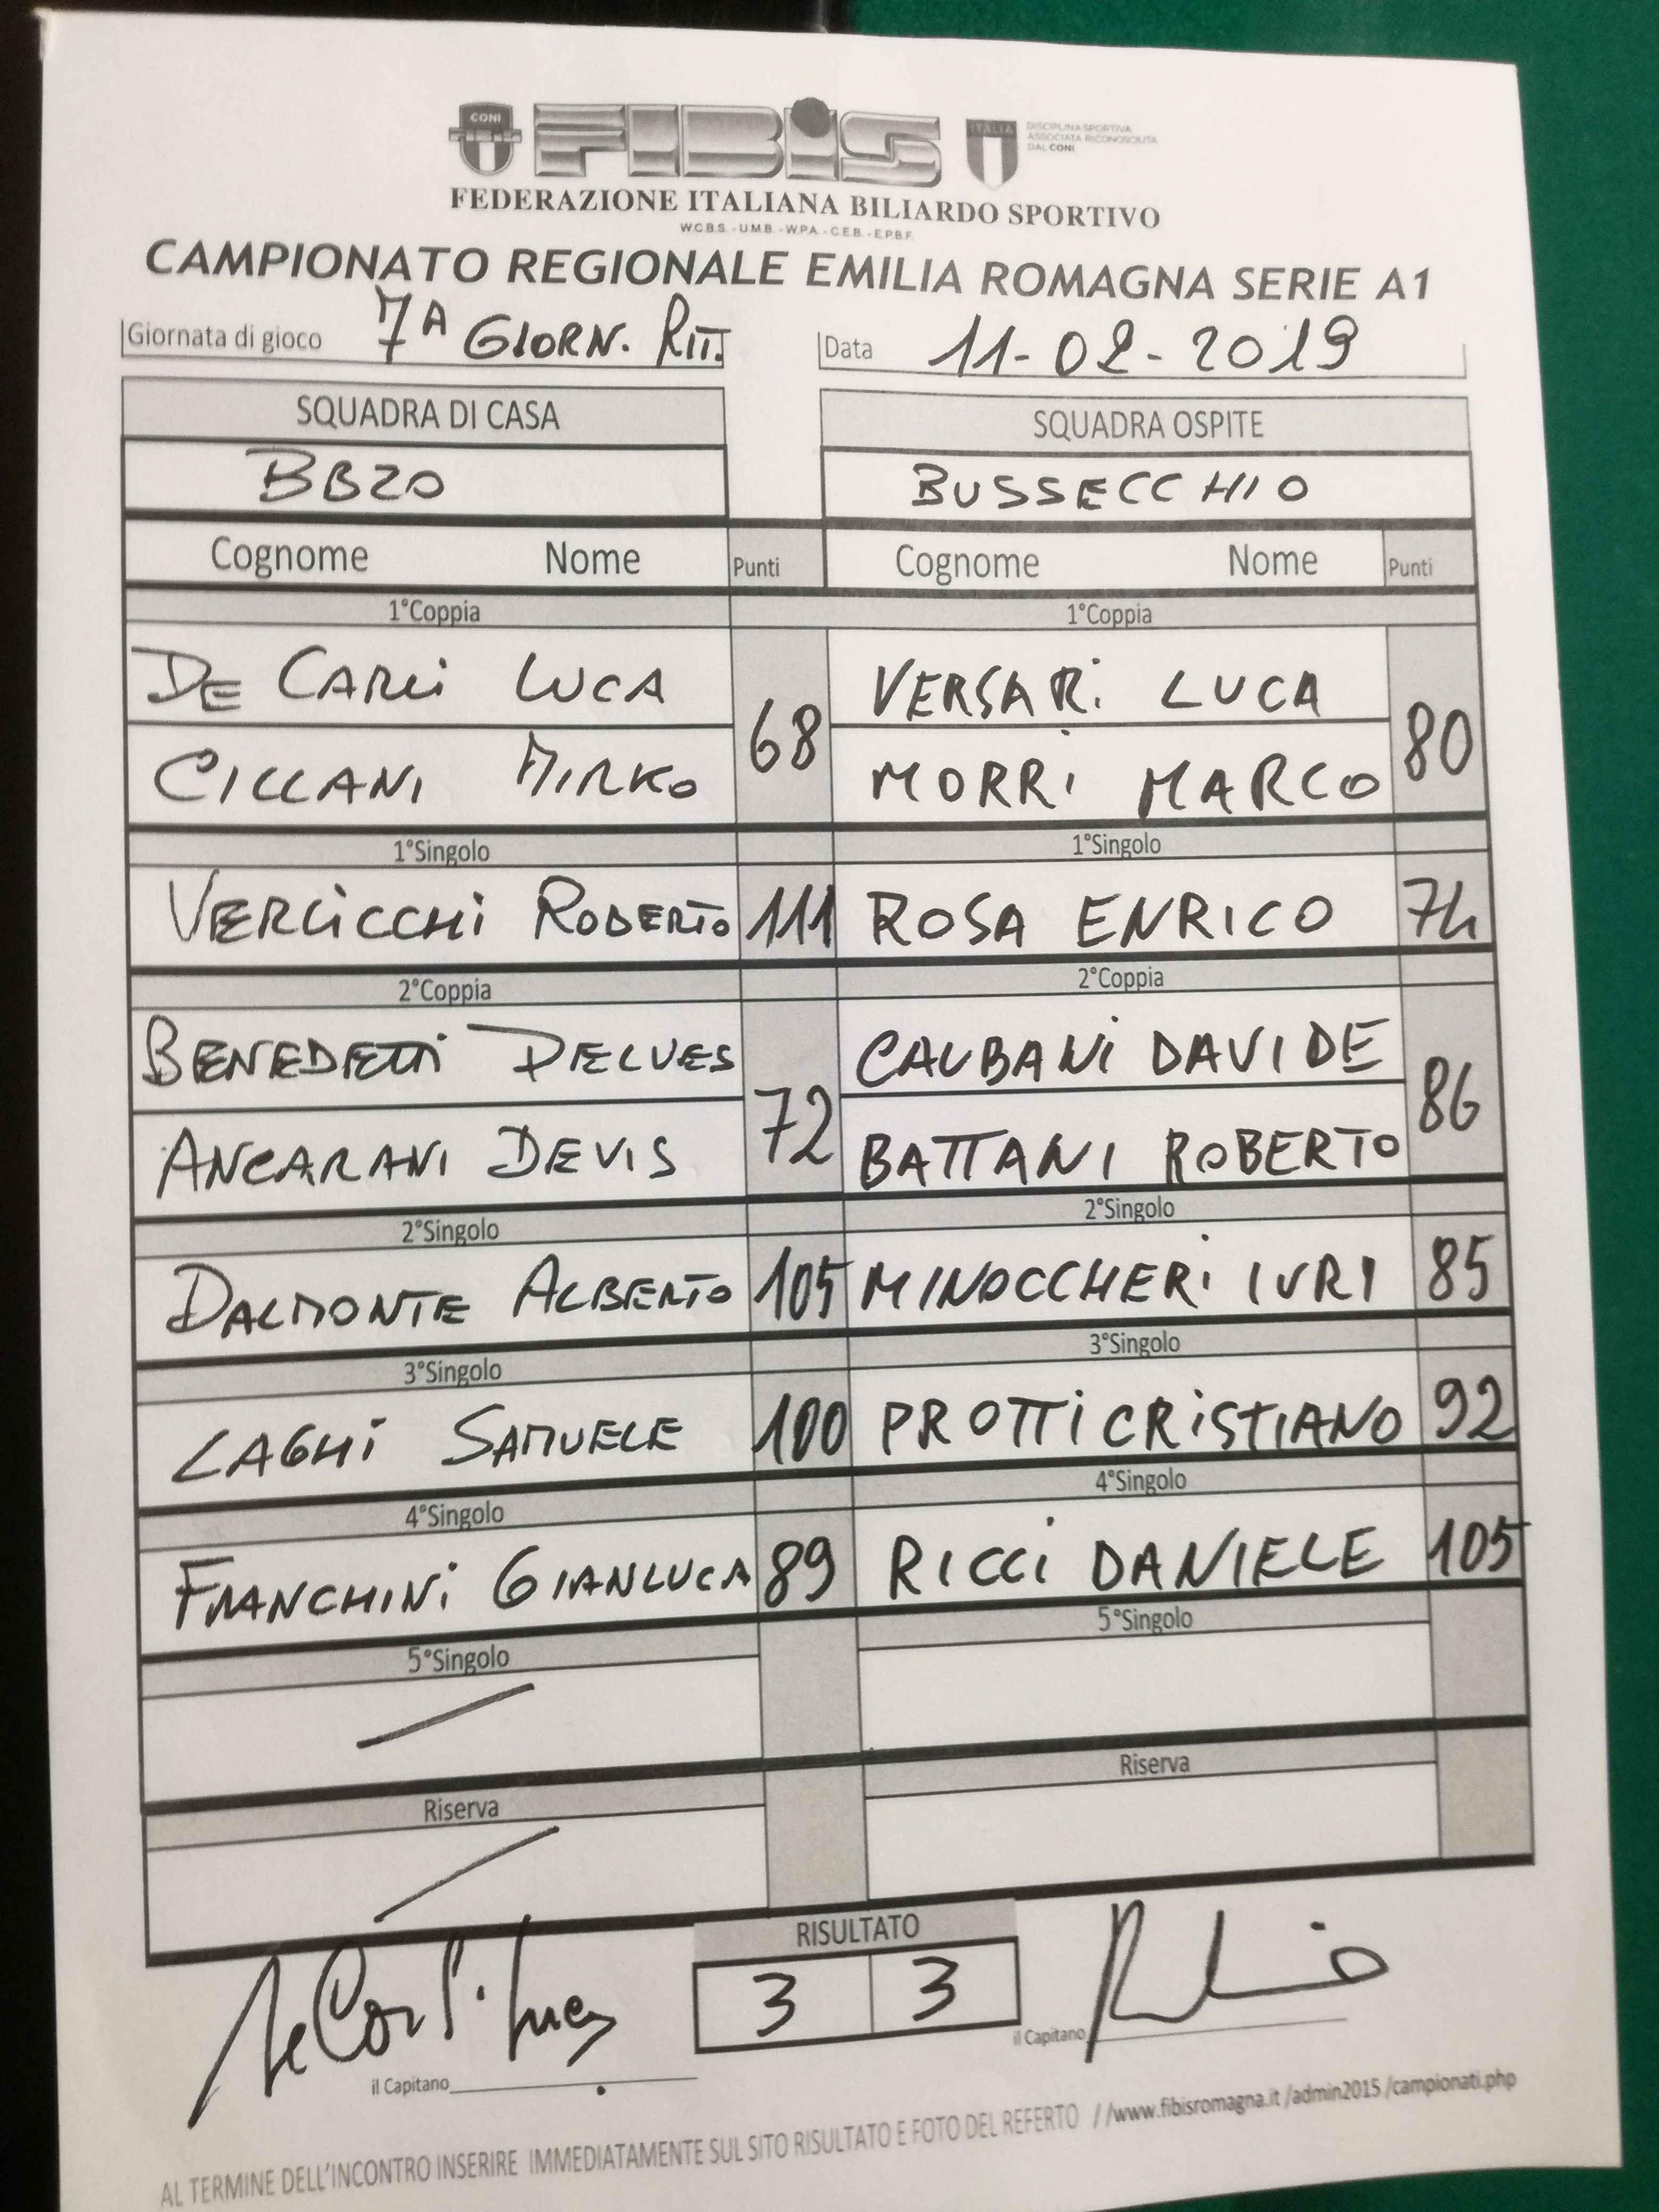 CONI
FIBIS
FIBiS
ITALIA
DISCIPLINA SPORTIVA
ASSOCIATA RICONOSCIUTA
DAL CONI
FEDERAZIONE ITALIANA BILIARDO SPORTIVO
W.C.B.S. - U.M.B. - W.P.A. - C.E.B. - E.P.B.F.
CAMPIONATO REGIONALE EMILIA ROMAGNA SERIE A1
Giornata di gioco 7A GIORN. RIT. Data 11-02-2019
SQUADRA DI CASA SQUADRA OSPITE
BBZO BUSSECCHIO
Cognome Nome Punti Cognome Nome Punti
1°Coppia 1°Coppia
DE CARLi LUCA 68 VERSARi LUCA 80
CILLANI MIRKO MORRi MARCO
1°Singolo 1°Singolo
VERLiCCHi ROBERTO 111 ROSA ENRICO 74
2°Coppia 2°Coppia
BENEDETTi DELVES 72 CAUBANi DAVIDE 86
ANCARANI DEVIS BATTANI ROBERTO
2°Singolo 2°Singolo
DALMONTE ALBERTO 105 MINOCCHERi IURI 85
3°Singolo 3°Singolo
LAGHi SAMUELE 100 PROTTi CRiSTIANO 92
4°Singolo 4°Singolo
FRANCHINi GIANLUCA 89 RICCi DANIELE 105
5°Singolo 5°Singolo
Riserva Riserva
RISULTATO
3 3
De Carli Luca
il Capitano il Capitano
AL TERMINE DELL'INCONTRO INSERIRE IMMEDIATAMENTE SUL SITO RISULTATO E FOTO DEL REFERTO //www.fibisromagna.it /admin2015 /campionati.php